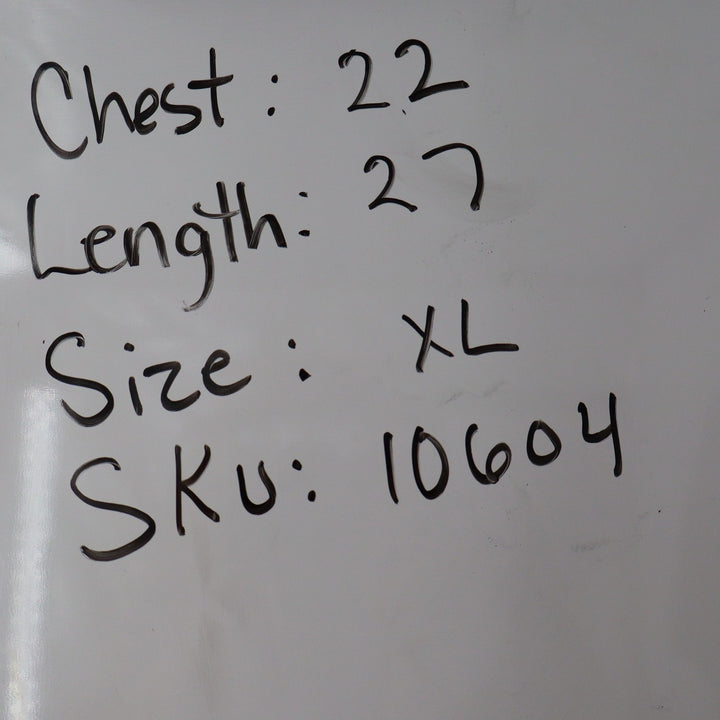 Chest: 22
Length: 27
Size: XL
SKU: 10604